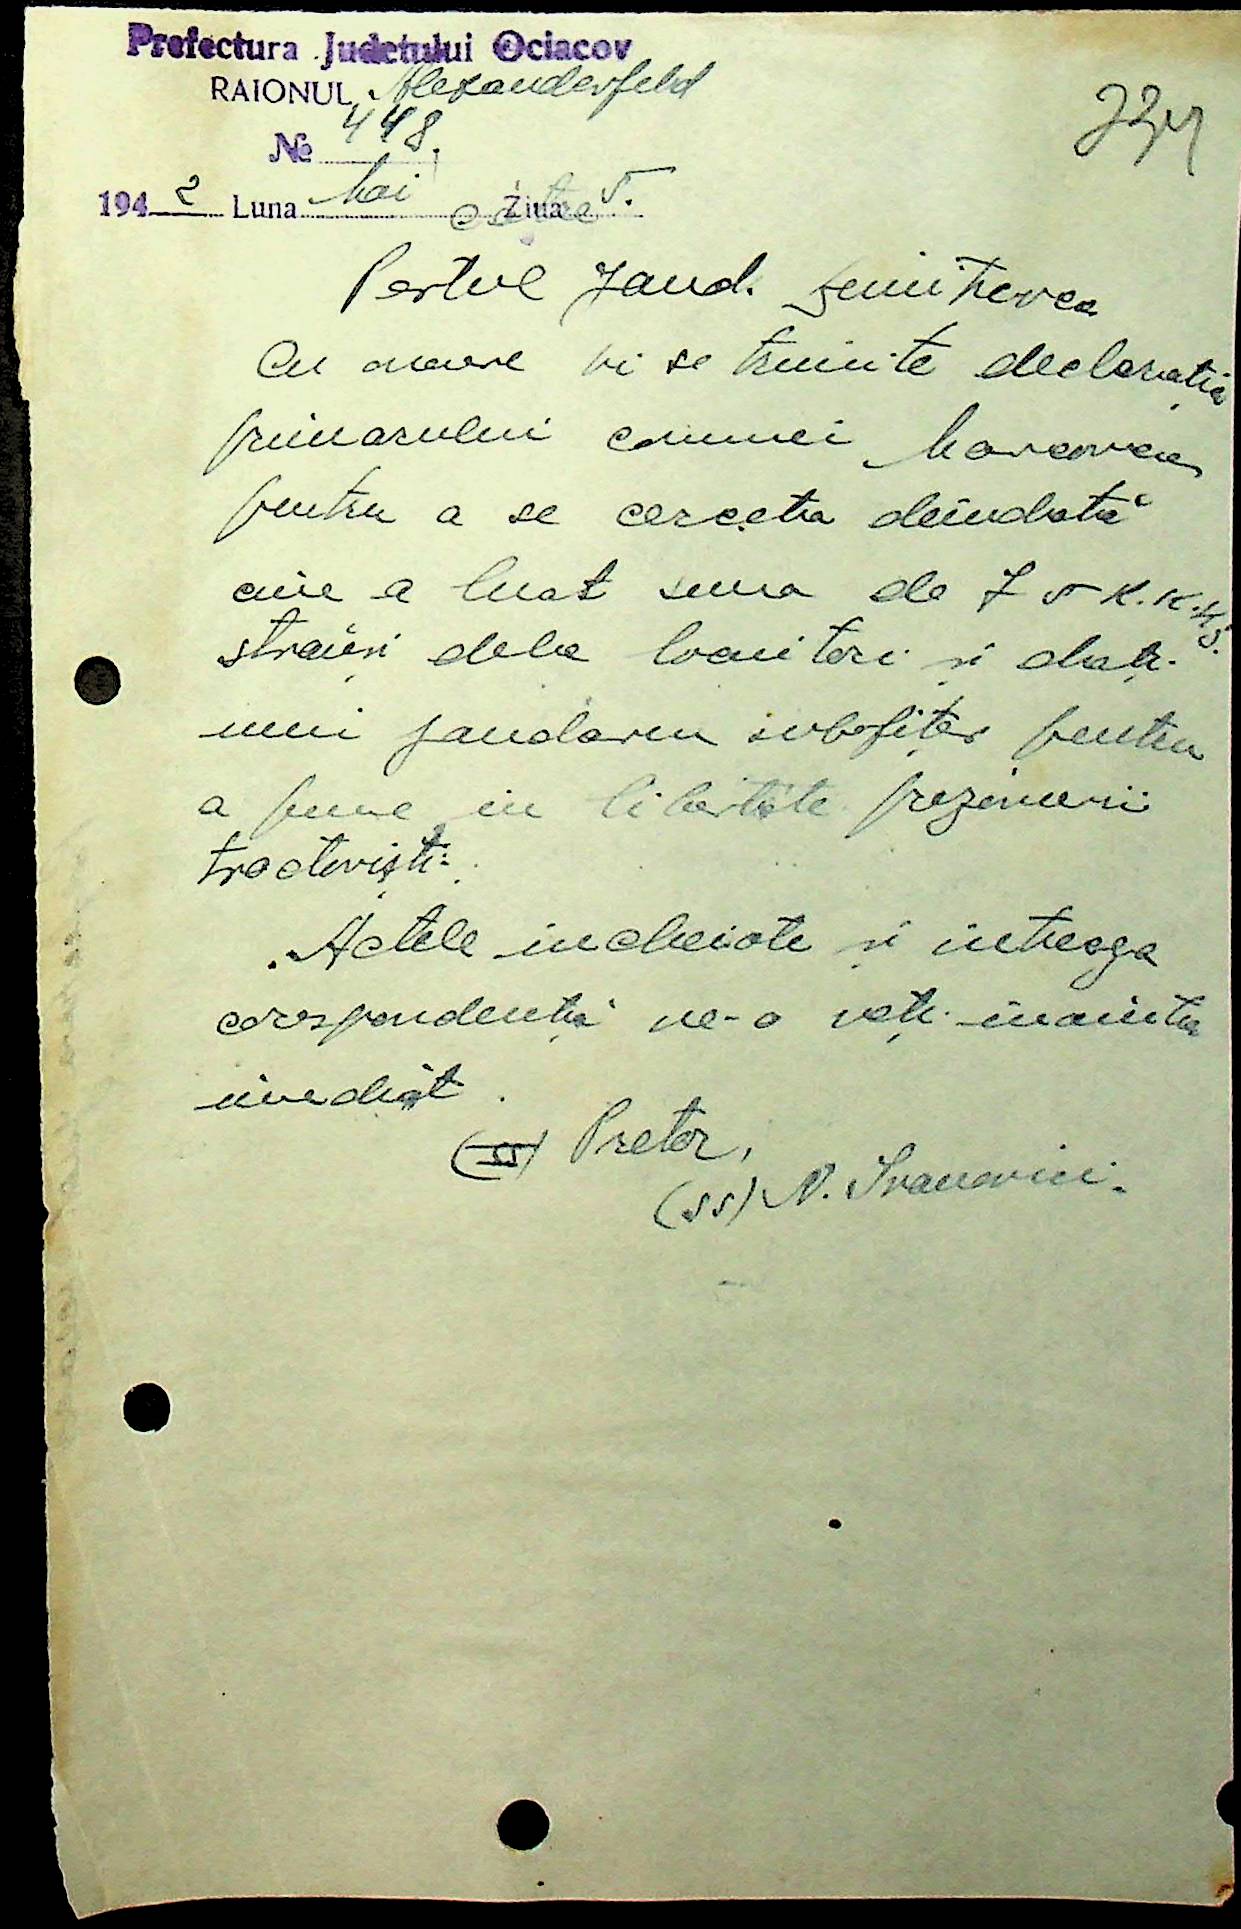 Prefectura Judetului Ociacov
RAIONUL Alexanderfeld
№ 448.
1942 Luna Mai Ziua 5.
către
Postul Jand.
Cu onoare vi se trimite declarația
primarului comunei
pentru a se cerceta deîndată
cine a luat suma de 75 R.K.K.S.
strânși dela locuitori și dați
unui jandarm subofițer pentru
a pune in libertate prizonierii
tractoriști.
Actele incheiate și intreaga
corespondență ne-o veți inainta
imediat.
(ss) Pretor,
(ss) N. Ivanovici.